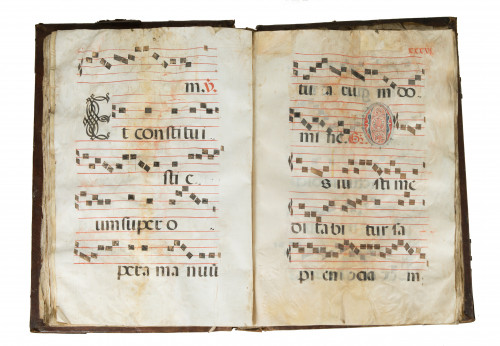 m. V.
Et constitui
sti e
um super o
pera manuū
XXXVI
tu a rum do
mi ne. O
s iu sti me
di tabi tur sa
pi en cia m